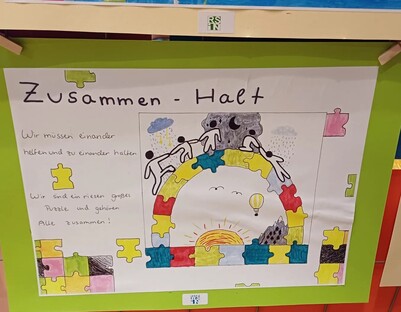 RS
1N
Zusammen - Halt
Wir müssen einander
helfen und zu einander halten
Wir sind ein riesen großes
Puzzle und gehören
Alle zusammen!